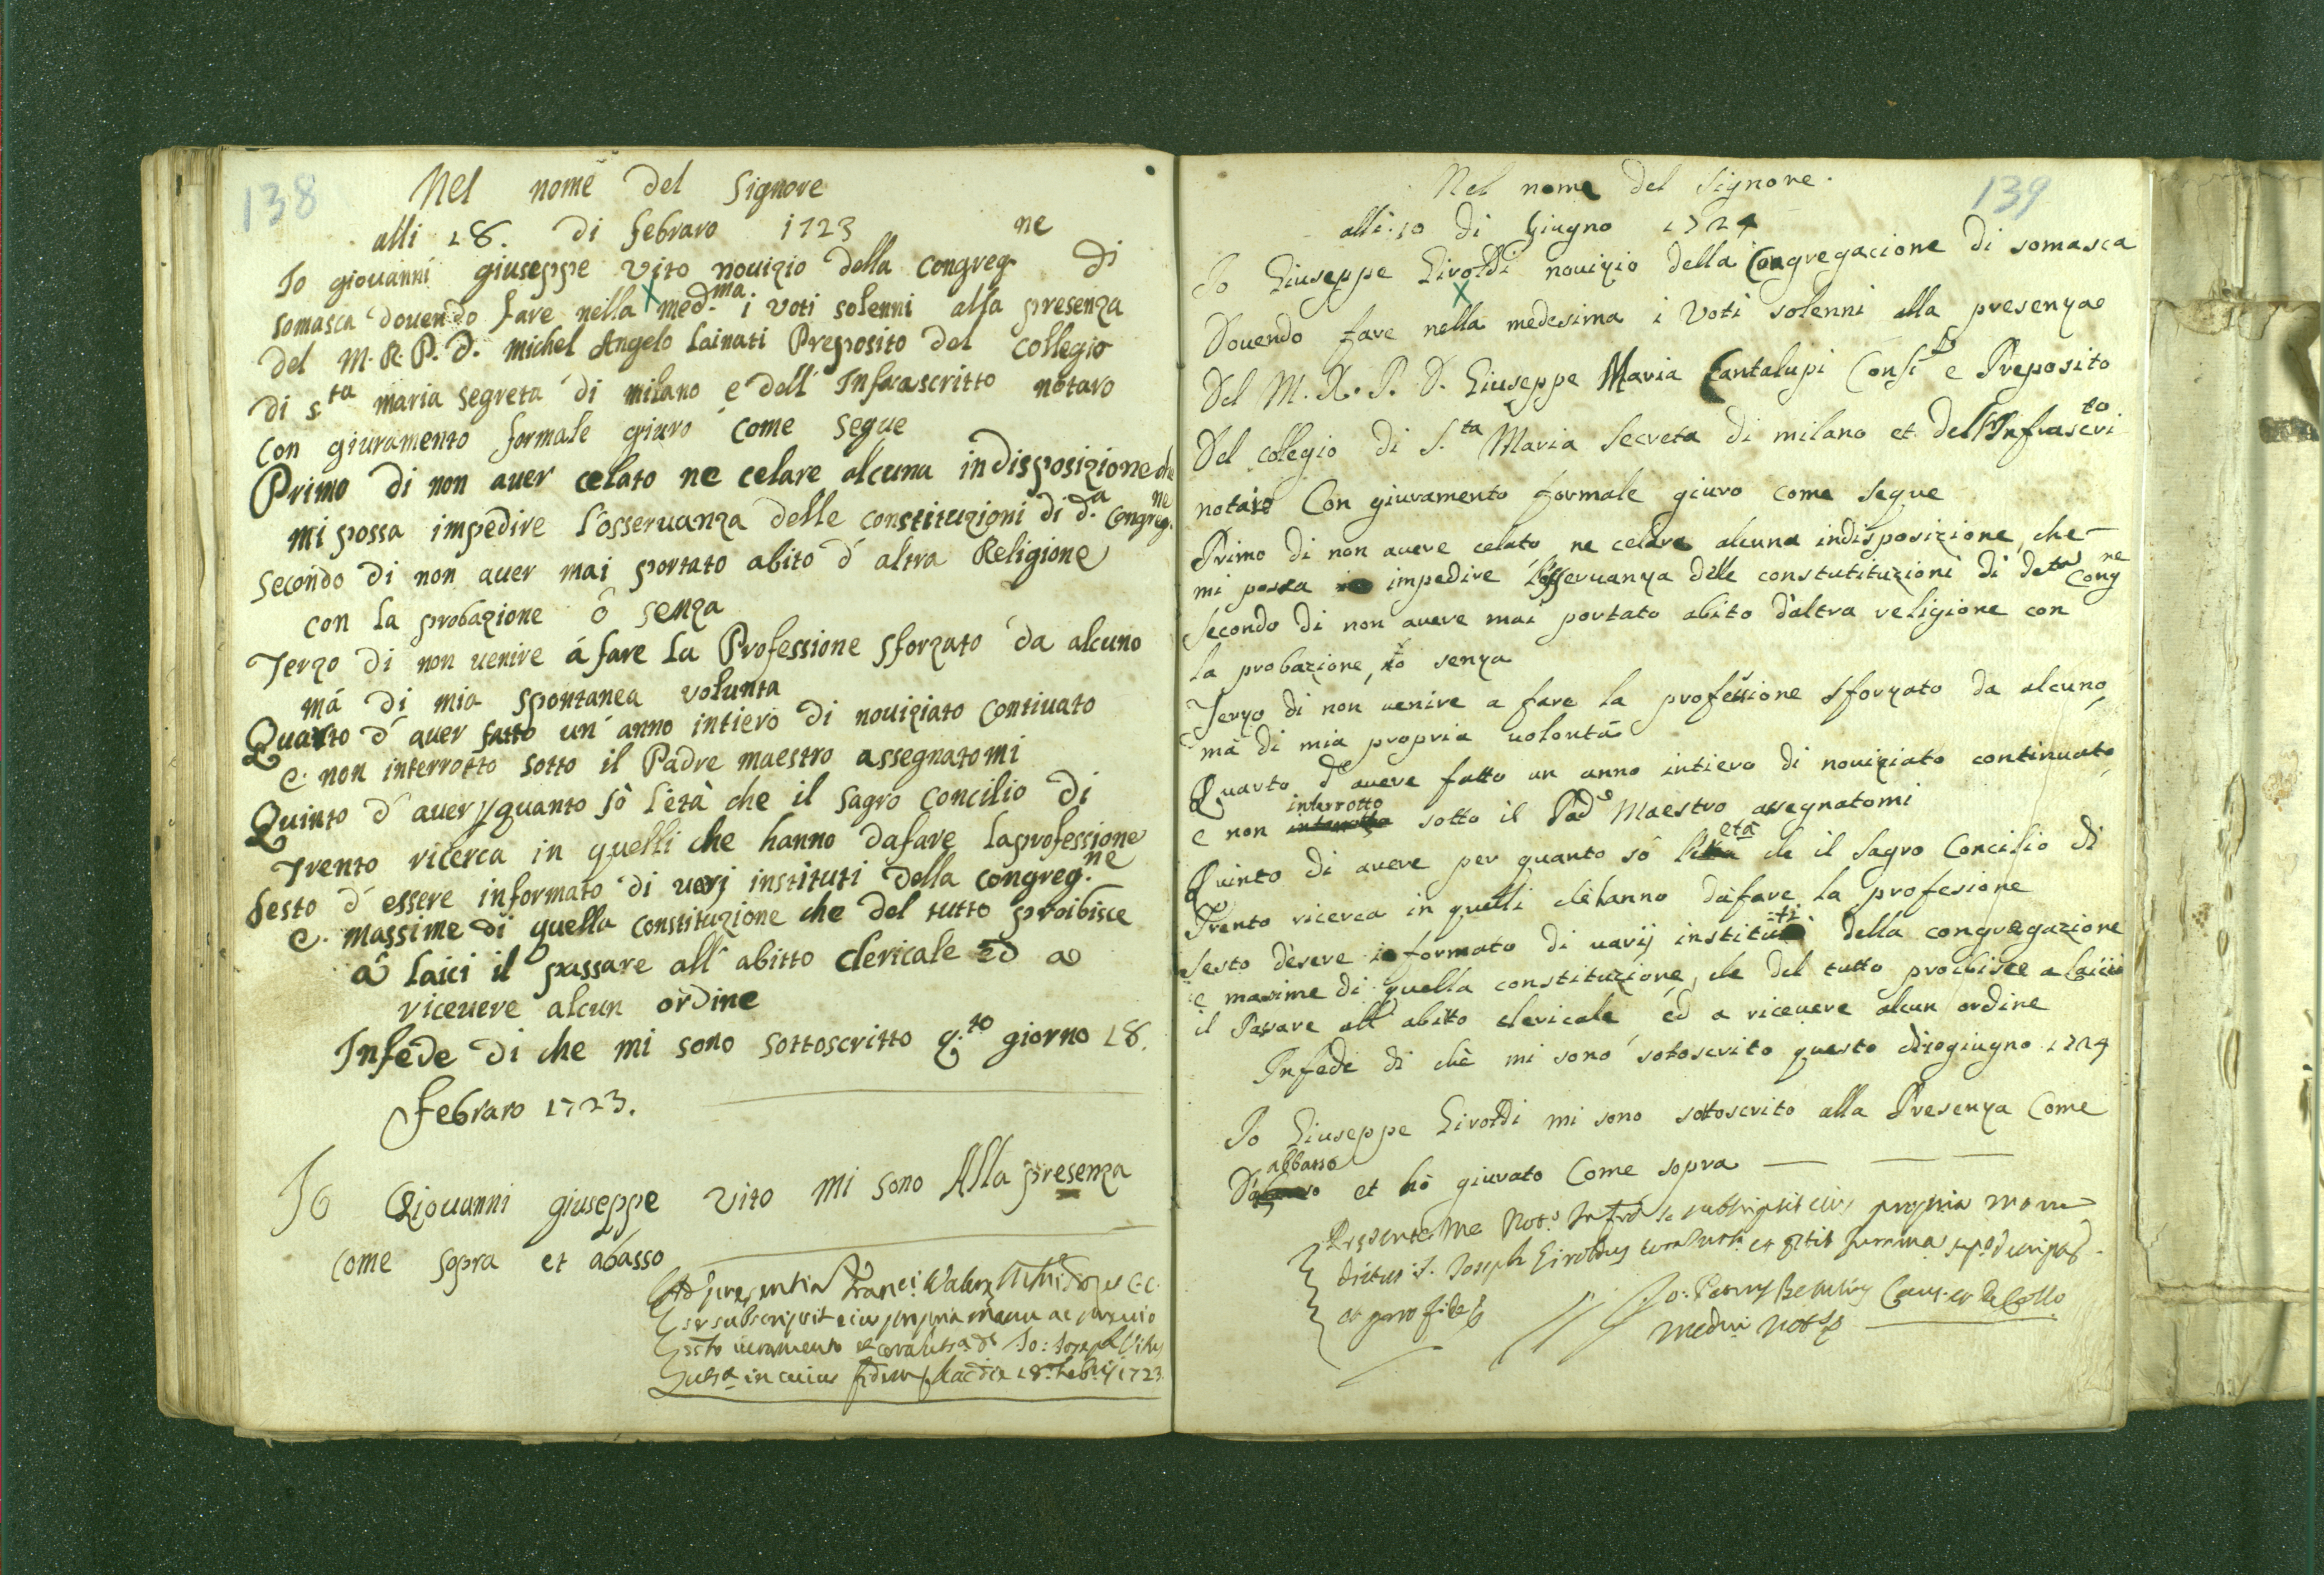 138
Nel nome del Signore
alli 28. di febraro 1723
Io giouanni giuseppe Vito nouizio della congreg.ne di
somasca douendo fare nella med.ma i voti solenni alla presenza
del M. R. P. D. Michel Angelo Lainati Preposito del Collegio
di s.ta maria segreta di milano e dell' Infrascritto notaro
con giuramento formale giuro come segue
Primo di non auer celato ne celare alcuna indisposizione che
mi possa impedire l'osseruanza delle constituzioni di d.a Congreg.ne
Secondo di non auer mai portato abito d' altra Religione
con la probazione ò senza
Terzo di non uenire á fare la Professione sforzato da alcuno
má di mia spontanea volunta
Quarto d' auer fatto un' anno intiero di nouiziato contiuato
e non interrotto sotto il Padre maestro assegnatomi
Quinto d' auer p quanto sò l'età che il sagro concilio di
Trento ricerca in quelli che hanno dafare laprofessione
Sesto d' essere informato di uarj instituti della congreg.ne
e massime di quella constituzione che del tutto proibisce
â laici il passare all' abitto clericale Ed a
riceuere alcun ordine
Infede di che mi sono sottoscritto q.to giorno 28.
Febraro 1723.
Io Giouanni giuseppe Vito mi sono Alla presenza
come sopra et abasso
se subscripsit eius propria manu ac
iuramento Io: Joseph Vitus
in cuius fidem hac die 28. Feb.ij 1723
139
Nel nome del Signore.
alli: 10 di Giugno 1724
Io Giuseppe Giroldi nouizio della Congregacione di somasca
Douendo fare nella medesima i Voti solenni alla presenza
Del M. R. P. D. Giuseppe Maria Cantalupi Consi.e e Preposito
Del colegio di S.ta Maria Secreta di milano et dell'Infrascrito
notaro Con giuramento formale giuro come segue
Primo di non auere celato ne celare alcuna indisposizione, che
mi possa impedire l'osseruanza delle constutituzioni di detta Cong.ne
Secondo di non auere mai portato abito d'altra religione con
la probazione, ò senza
Terzo di non uenire a fare la professione sforzato da alcuno,
mà di mia propria uolontà
Quarto d'auere fatto un anno intiero di nouiziato continuato,
e non interrotto sotto il Pad.e Maestro assegnatomi
Quinto di auere per quanto sò l'età che il Sagro Concilio di
Trento ricerca in quelli chè hanno dàfare la profesione
Sesto d'esere informato di uarij instituti della congregazione
e masime di quella constituzione, che del tutto proibisce a laici
il Passare all' abitto clericale ed a riceuere alcun ordine
Infede di chè mi sono sotoscrito questo di 10 giugno 1724
Io Giuseppe Giroldi mi sono sottoscrito alla Presenza Come
D'abbasso et hò giurato Come sopra
Presente me Not.o Infr.o se subscripsit eius propria manu
dictus D. Joseph Giroldus
et pro fide
Caus. et de Coll.o
Med.ni Not.s